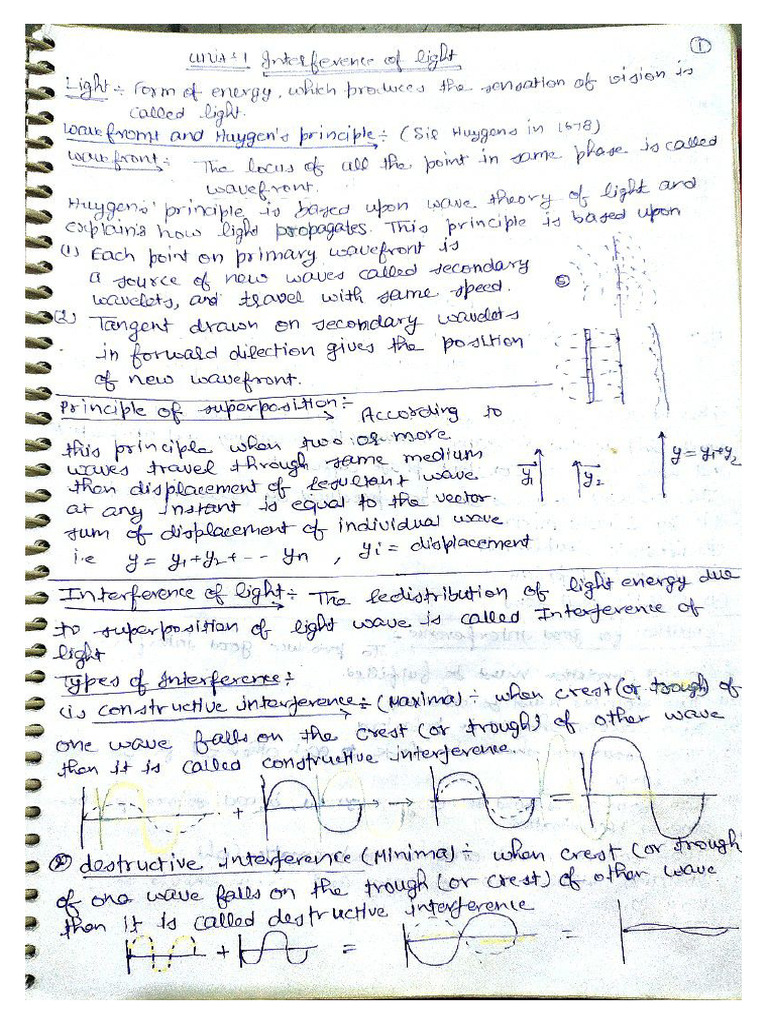 ①
Unit-1 Interference of light
Light÷ Form of energy, which produces the sensation of vision is
called light.
Wavefront and Huygen's principle÷ (Sir Huygens in 1678)
Wavefront÷ The locus of all the point in same phase is called
wavefront.
Huygens' principle is based upon wave theory of light and
explains how light propagates. This principle is based upon
(1) Each point on primary wavefront is
a source of new waves called secondary
wavelets, and travel with same speed.
S
(2) Tangent drawn on secondary wavelets
in forward direction gives the position
of new wavefront.
Principle of superposition÷ According to
this principle when two or more
waves travel through same medium
then displacement of resultant wave
at any instant is equal to the vector
sum of displacement of individual wave
i.e y = y1+y2+ -- yn , yi = displacement
y1 y2 y = y1+y2
Interference of light÷ The redistribution of light energy due
to superposition of light wave is called Interference of
light
Types of Interference÷
(1) constructive interference÷ (Maxima)÷ when crest (or trough) of
one wave falls on the crest (or trough) of other wave
then it is called constructive interference.
+ → =
(2) destructive interference (Minima)÷ when crest (or trough)
of one wave falls on the trough (or crest) of other wave
then it is called destructive interference
+ = =